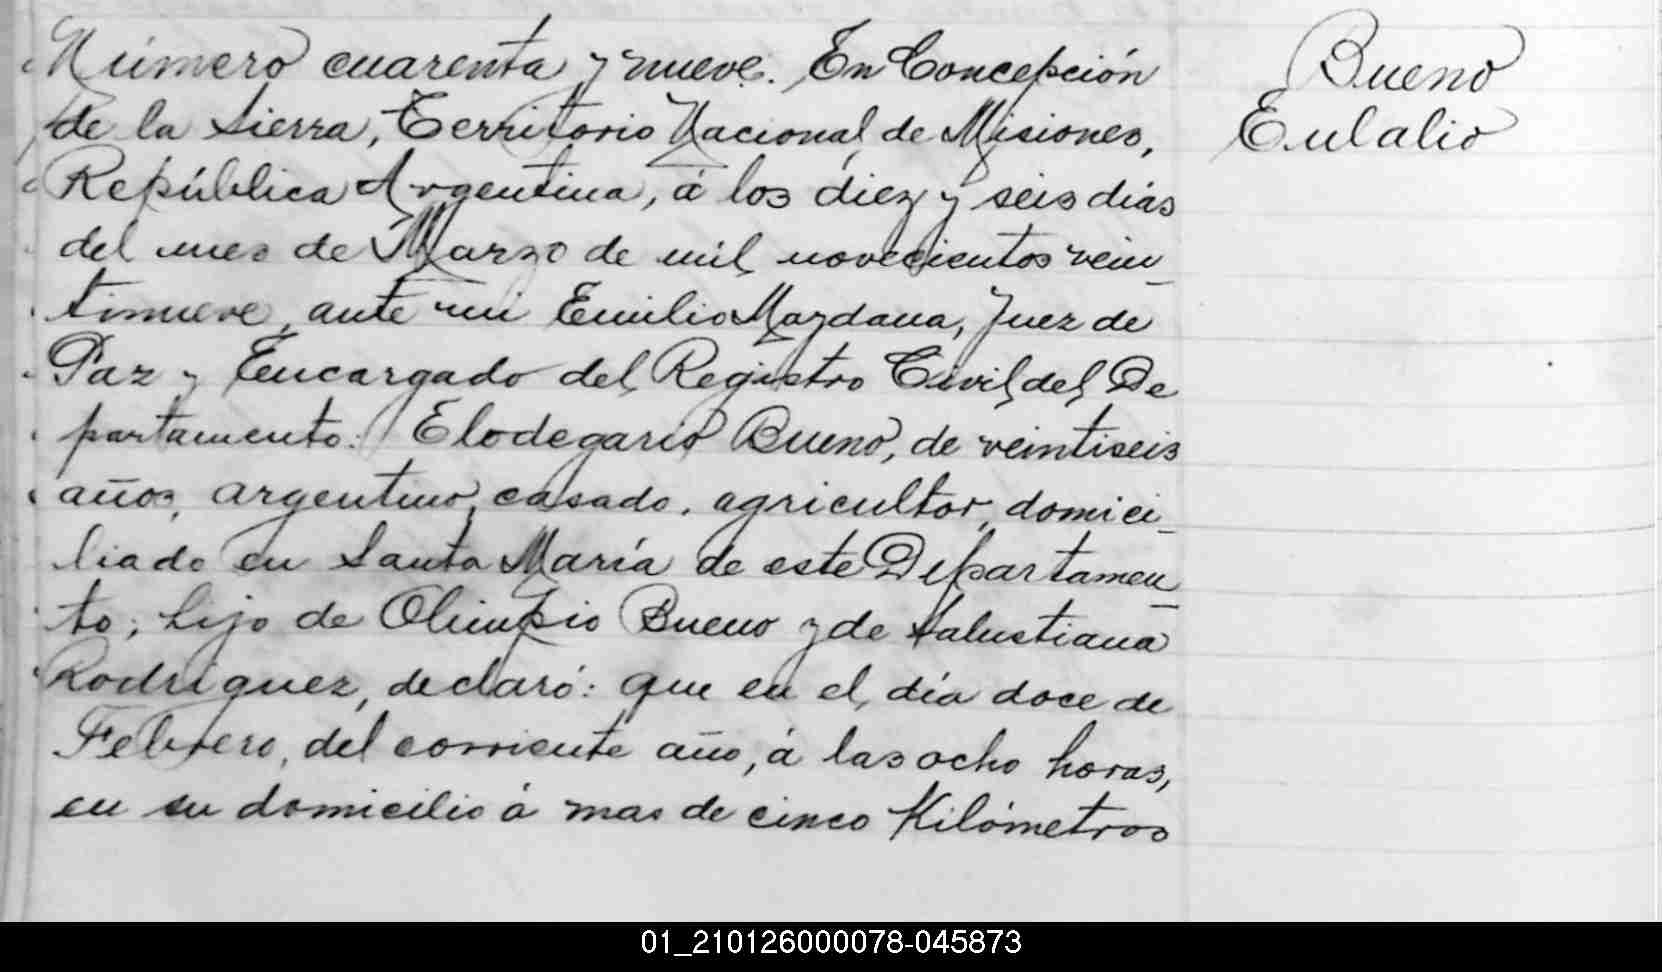 Número cuarenta y nueve. En Concepción
de la Sierra, Territorio Nacional de Misiones,
República Argentina, á los diez y seis dias
del mes de Marzo de mil novecientos vein_
tinueve, ante mi Emilio Mazdana, Juez de
Paz y Encargado del Registro Civil del De
partamento: Elodegario Bueno, de veintiseis
años, argentino, casado, agricultor, domici_
liado en Santa María de este Departamen_
to; hijo de Olimpio Bueno y de Salustiana
Rodríguez, declaró: que en el día doce de
Febrero, del corriente año, á las ocho horas,
en su domicilio á mas de cinco Kilómetros
Bueno
Eulalio
01_210126000078-045873